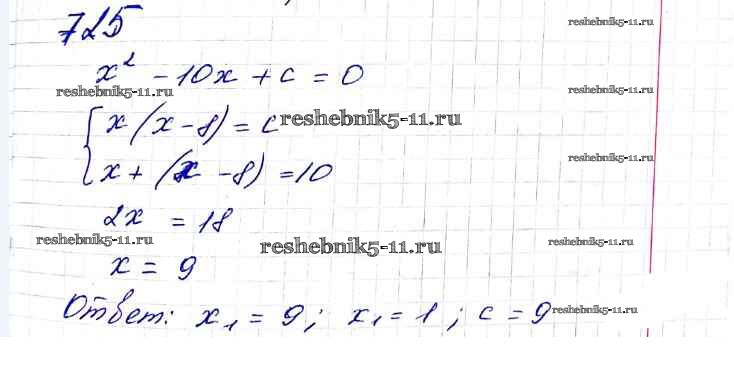 725
reshebnik5-11.ru
x² - 10x + c = 0
reshebnik5-11.ru
reshebnik5-11.ru
x(x - 8) = c
reshebnik5-11.ru
x + (x - 8) = 10
reshebnik5-11.ru
2x = 18
reshebnik5-11.ru
reshebnik5-11.ru
reshebnik5-11.ru
x = 9
Ответ: x₁ = 9; x₁ = 1; c = 9
reshebnik5-11.ru